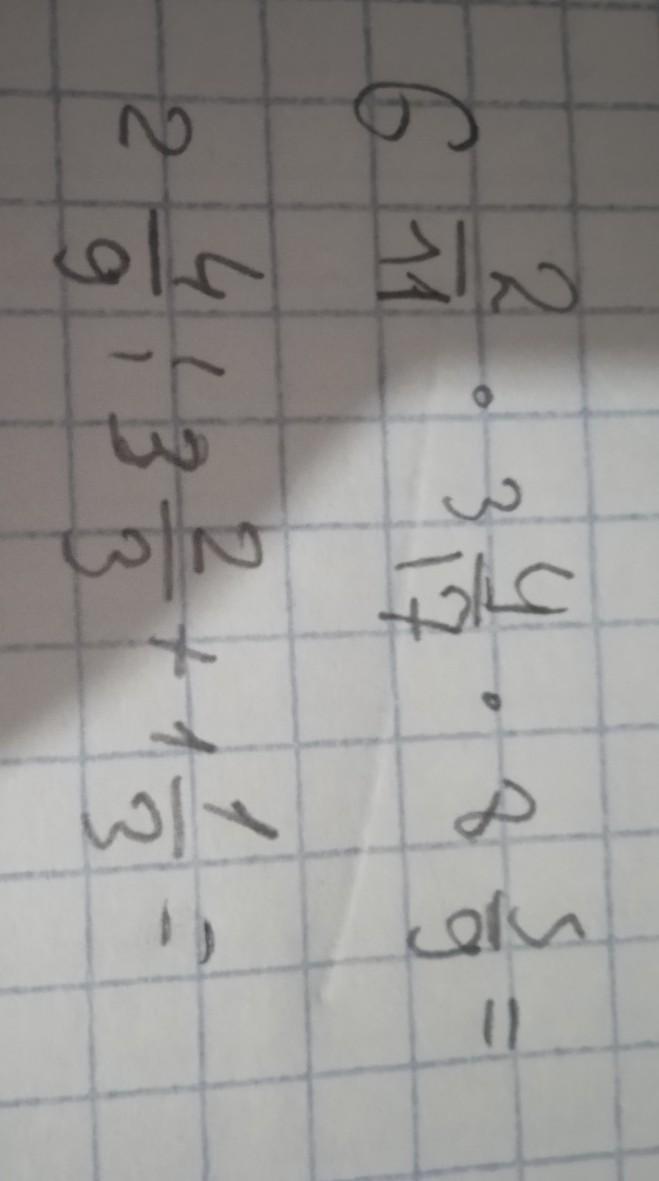 6 2/11 · 3 4/17 · 8 5/9 =
2 4/9 : 3 2/3 + 1 1/3 =